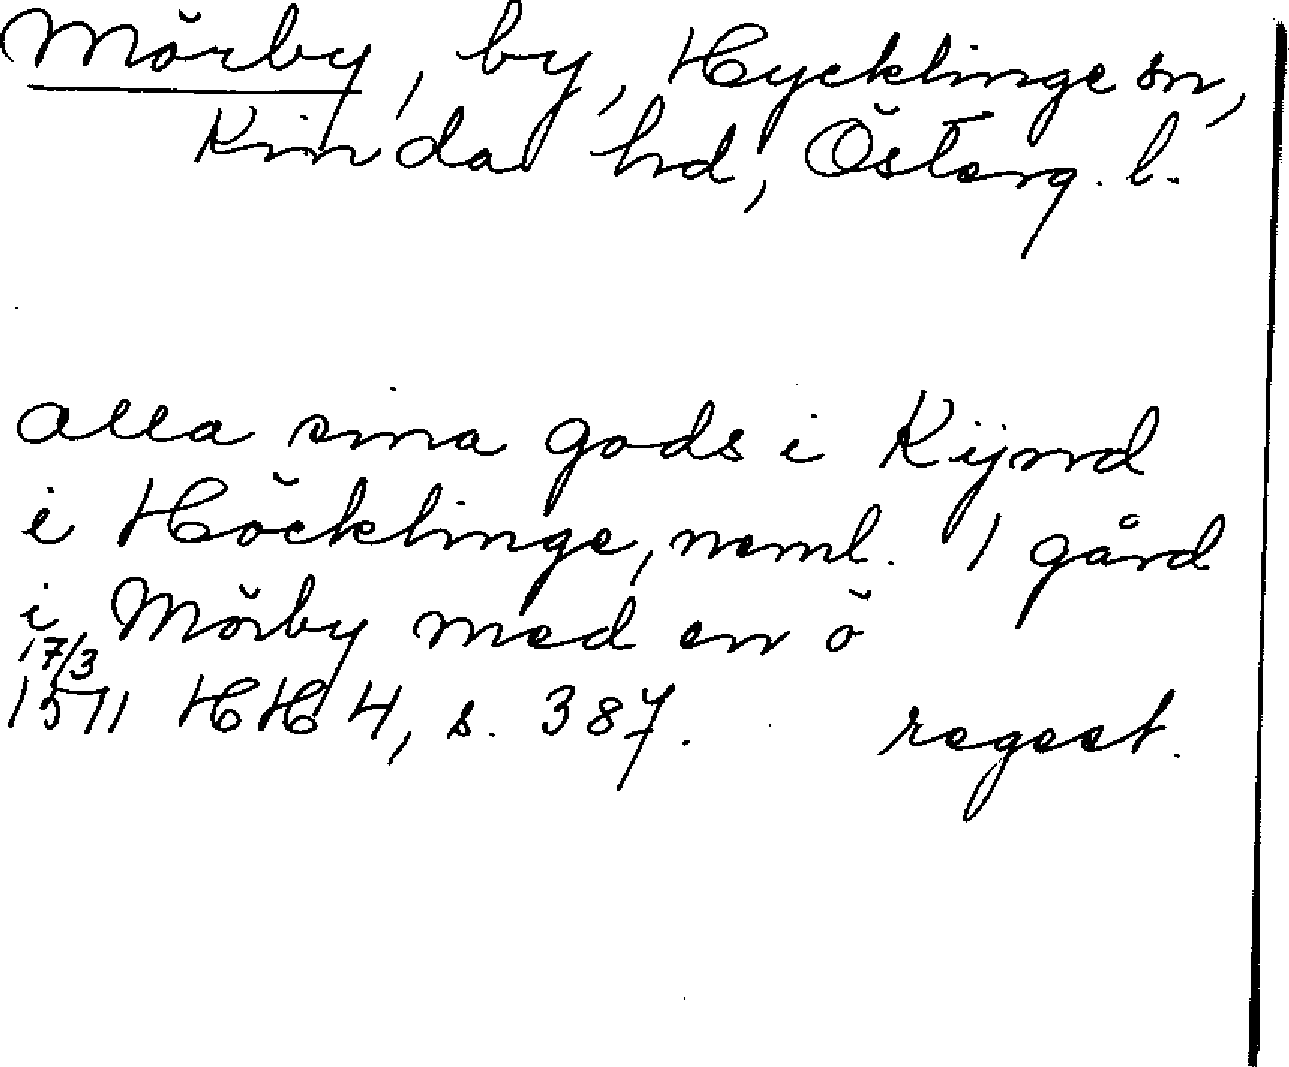 Mörby, by, Hycklinge sn,
Kinda hd, Österg. l.
alla sina gods i Kijnd
i Höcklinge, neml. 1 gård
i Mörby med en ö
17/3
1571 HH 4, s. 387. regest.